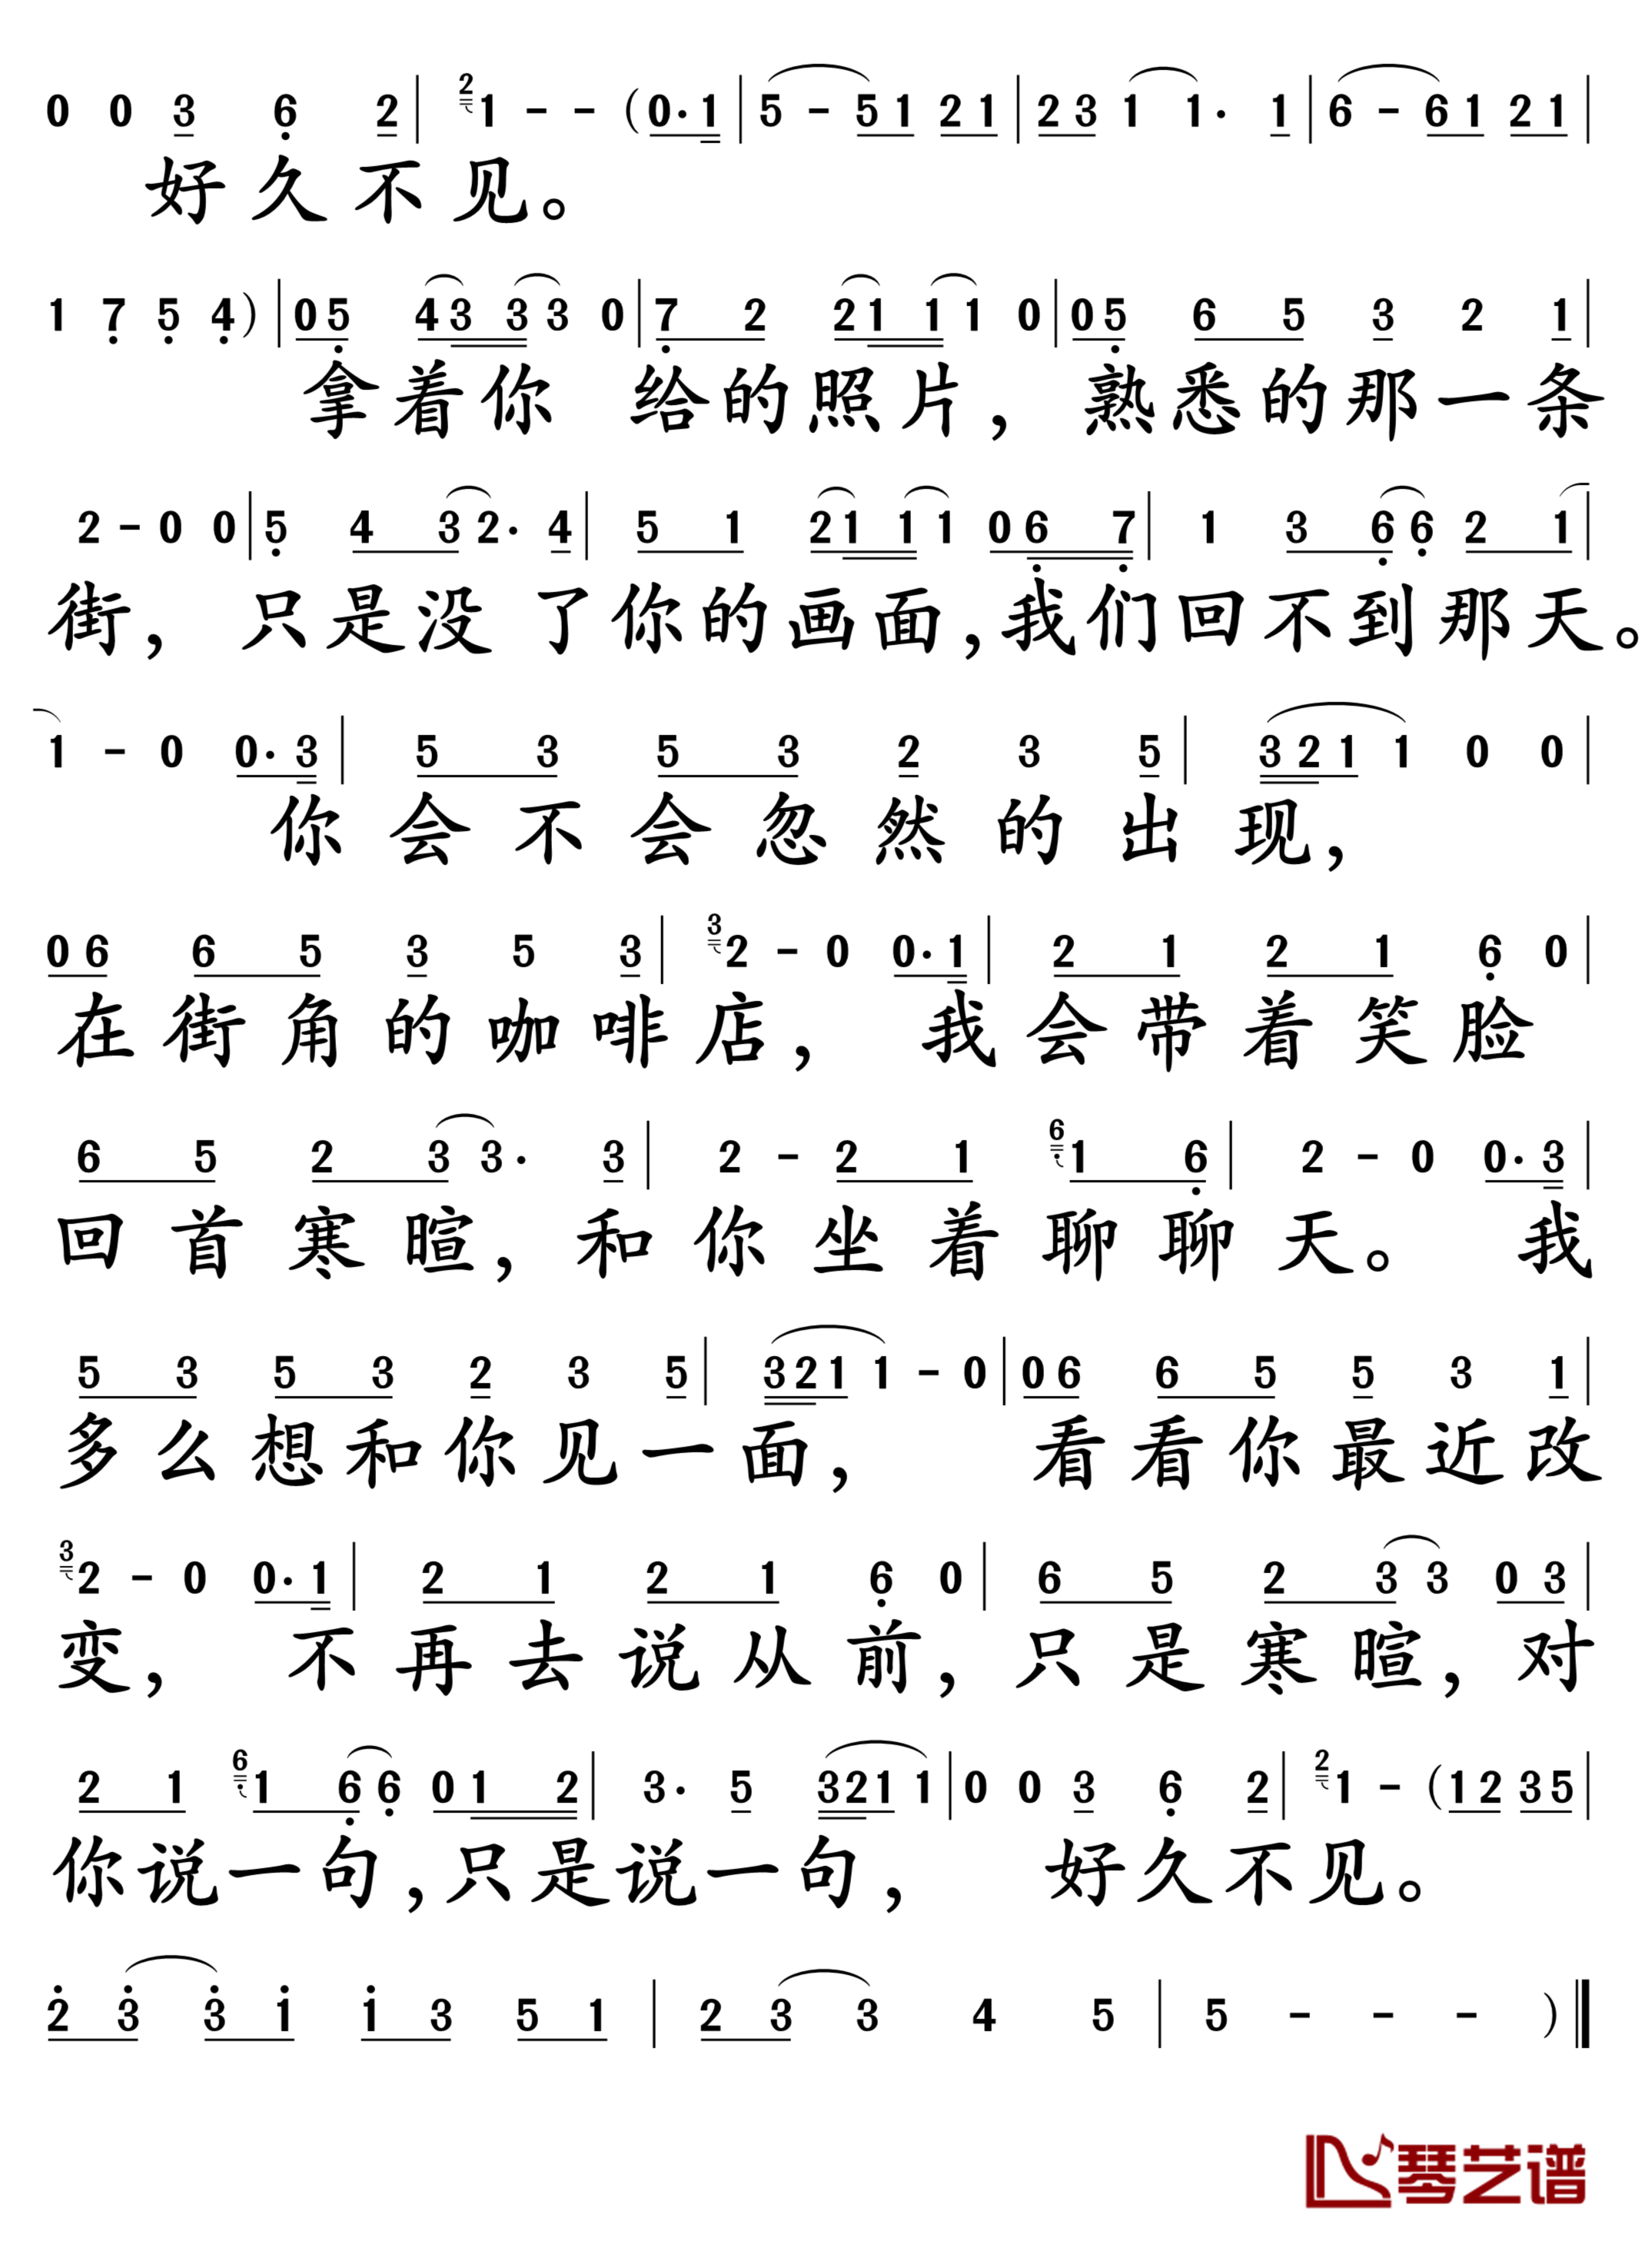 0 0 3 6 2 | 2 1 - - (0·1 | 5 - 51 21 | 23 1 1· 1 | 6 - 61 21 |
好久不见。
1 7 5 4) | 05 43 33 0 | 7 2 21 11 0 | 05 6 5 3 2 1 |
拿着你 给的照片，熟悉的那一条
2 - 0 0 | 5 4 3 2· 4 | 5 1 21 11 06 7 | 1 3 6 6 2 1 |
街，只是没了你的画面，我们回不到那天。
1 - 0 0·3 | 5 3 5 3 2 3 5 | 321 1 0 0 |
你会不会忽然的出现，
06 6 5 3 5 3 | 3 2 - 0 0·1 | 2 1 2 1 6 0 |
在街角的咖啡店，我会带着笑脸
6 5 2 3 3· 3 | 2 - 2 1 6 1 6 | 2 - 0 0·3 |
回首寒暄，和你坐着聊聊天。 我
5 3 5 3 2 3 5 | 321 1 - 0 | 06 6 5 5 3 1 |
多么想和你见一面， 看看你最近改
3 2 - 0 0·1 | 2 1 2 1 6 0 | 6 5 2 3 3 0 3 |
变， 不再去说从前，只是寒暄，对
2 1 6 1 6 6 01 2 | 3· 5 321 1 | 0 0 3 6 2 | 2 1 - (12 35 |
你说一句，只是说一句， 好久不见。
2 3 3 1 1 3 5 1 | 2 3 3 4 5 | 5 - - - )
琴艺谱